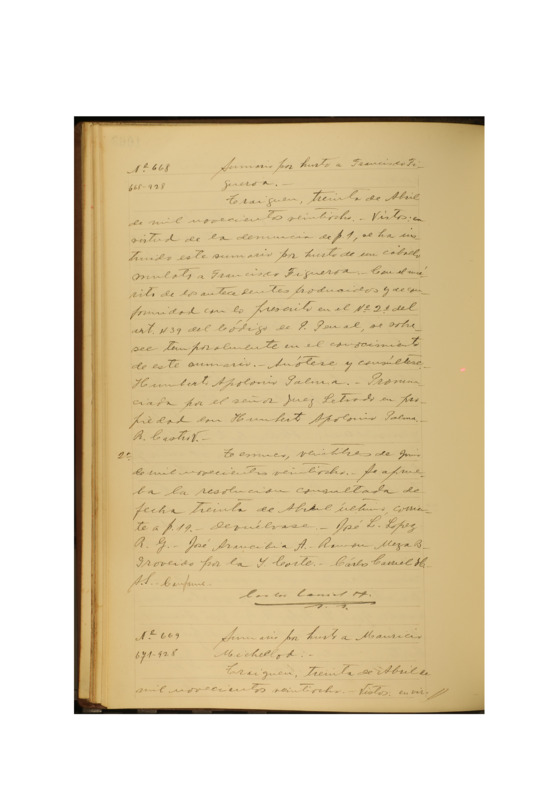 Nº 668 Sumario por hurto a Francisco Fi-
668-928 gueroa.-
Traiguen, treinta de Abril
de mil novecientos veintiocho.- Vistos: en
virtud de la denuncia de f 1, se ha ins-
truido este sumario por hurto de un caballo
mulato a Francisco Figueroa.- Con el mé-
rito de los antecedentes producidos y de con-
formidad con lo prescrito en el Nº 2º del
art. 439 del Código de P. Penal, se sobre-
see temporalmente en el conocimiento
de este sumario.- Anótese y consúltese.-
Humberto Apolonio Palma.- Pronun-
ciada por el señor Juez Letrado en pro-
piedad don Humberto Apolonio Palma.-
R. Castro V.-
2ª Temuco, veintitres de
de mil novecientos veintiocho.- Se aprue-
ba la resolucion consultada de
fecha treinta de Abril último, corrien-
te a f 19.- Devuélvase.- José L. Lopez
R. G.- José Arancibia A.- Ramon Meza B.-
Proveido por la I. Corte.- Cárlos
S. S.- Conforme.-
Carlos
S. S.
Nº 669 Sumario por hurto a Mauricio
671-928
Traiguen, treinta de Abril de
mil novecientos veintiocho.- Vistos: en vir-